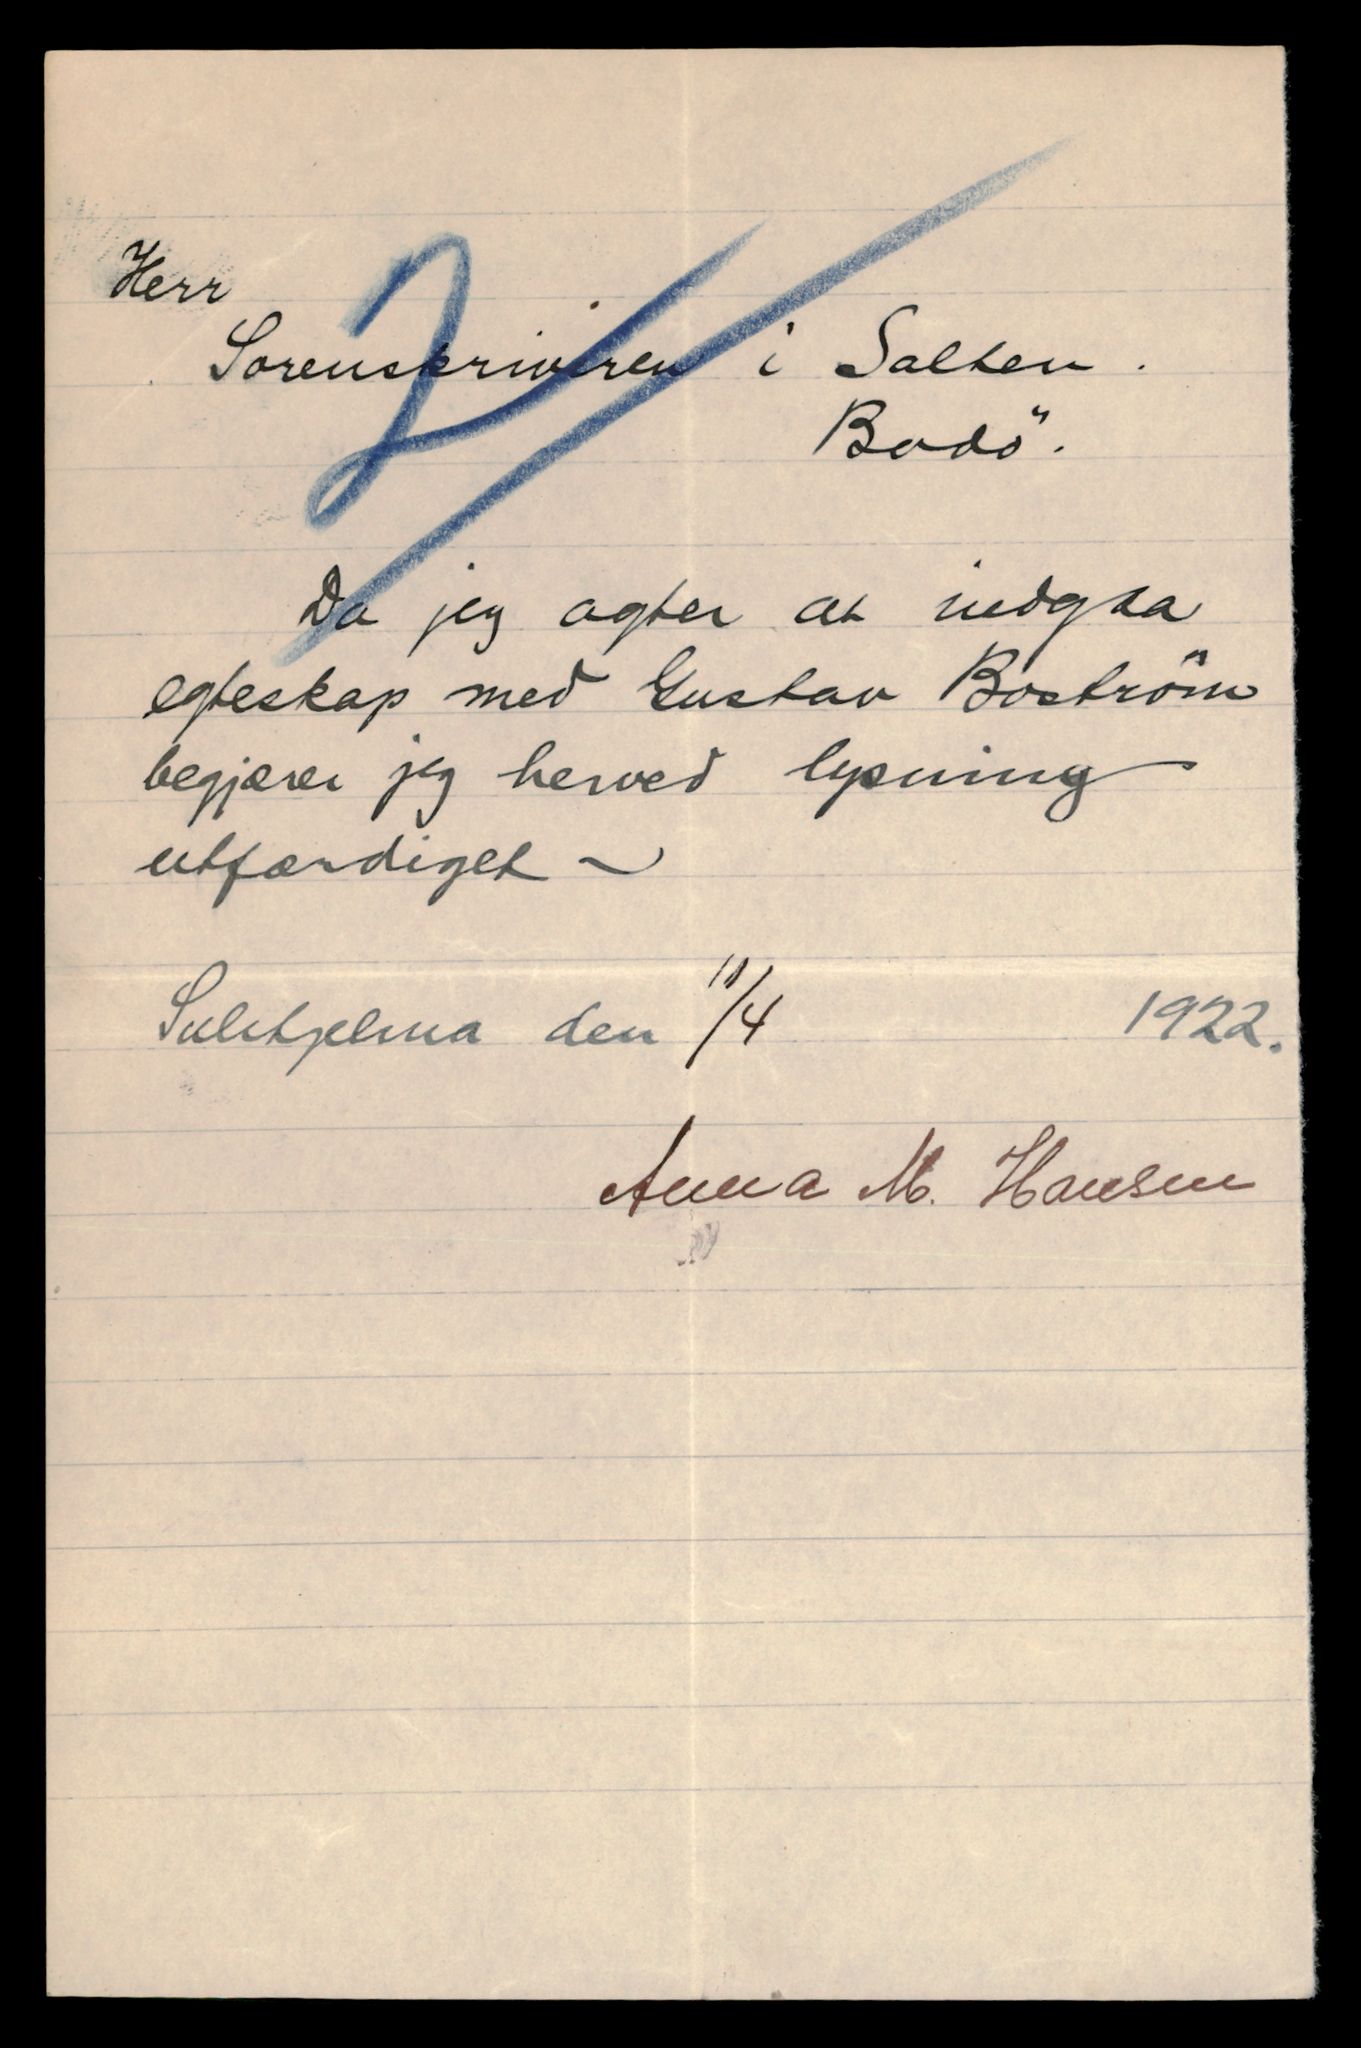 Herr
Sorenskriveren i Salten.
Bodö.
Da jeg agter at indgaa
egteskap med Gustav Boström
begjærer jeg herved lysning
utfærdiget ~
Sulitjelma den 11/4 1922.
Anna M. Hansen